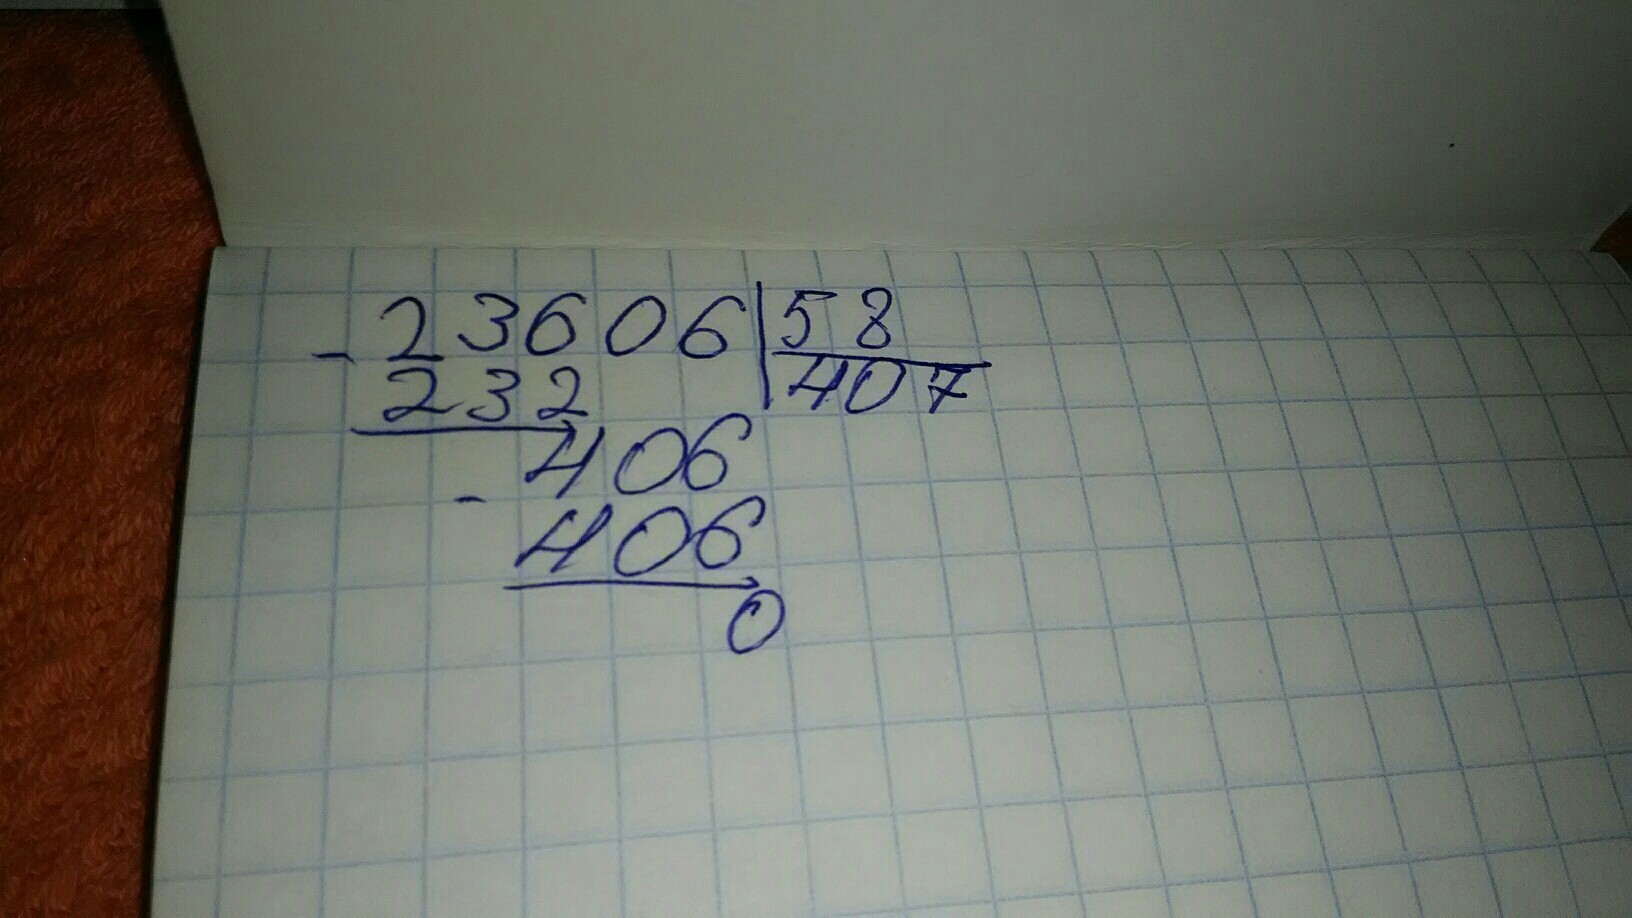 - 23606 | 58
232 | 407
- 406
406
0